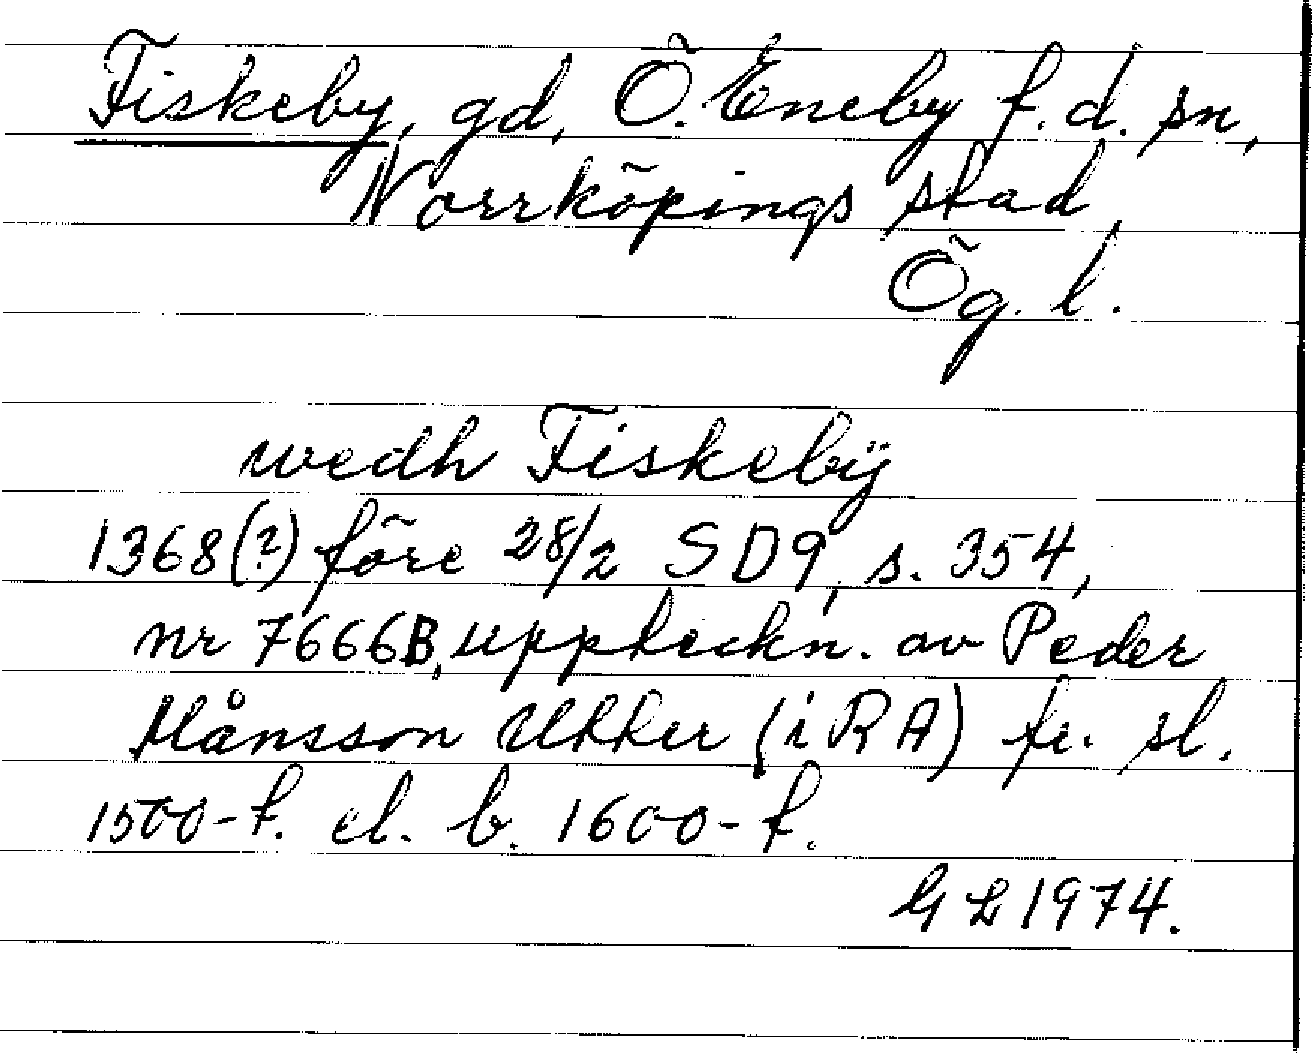 Fiskeby, gd, Ö. Eneby f.d. sn,
Norrköpings stad,
Ög. l.
wedh Fiskebÿ
1368(?) före 28/2 SD9, s. 354,
nr 7666B, uppteckn. av Peder
Månsson Utter (i RA) fr. sl.
1500-t. el. b. 1600-t.
GL 1974.